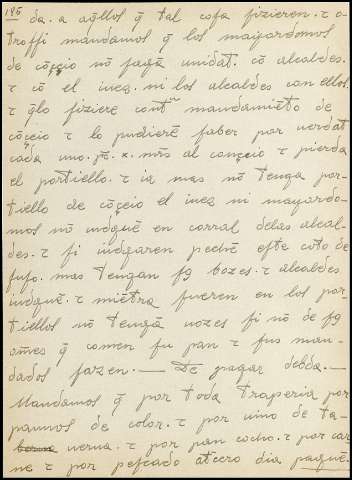 195
da. a aq̄llos q̄ tal cosa fizieren. τ o-
trossi mandamos q̄ los mayordomos
de cōçeio nō fagā unidat. cō alcaldes.
τ cō el iuez. ni los alcaldes con ellos.
τ q̄lo fiziere contra mandamiēto de
cōçeio τ lo pudierē saber por verdat
cada uno. pē. x. mr̄s al conçeio τ pierda
el portiello. τ ia mas nō tenga por-
tiello de cōçeio el iuez ni mayordo-
mos nō iudguē en corral delos alcal-
des. τ si iudgaren pechē este coto de
suso. mas tengan sꝯ bozes. τ alcaldes
iudguē. τ miētra fueren en los por-
tiellos nō tengā uozes si nō de sꝯ
om̄es q̄ comen su pan τ sus man-
dados fazen. — De pagar debda. —
Mandamos q̄ por toda traperia por
pannos de color. τ por uino de ta-
uerna. τ por pan cocho. τ por car
ne τ por pescado atercero dia paguē.